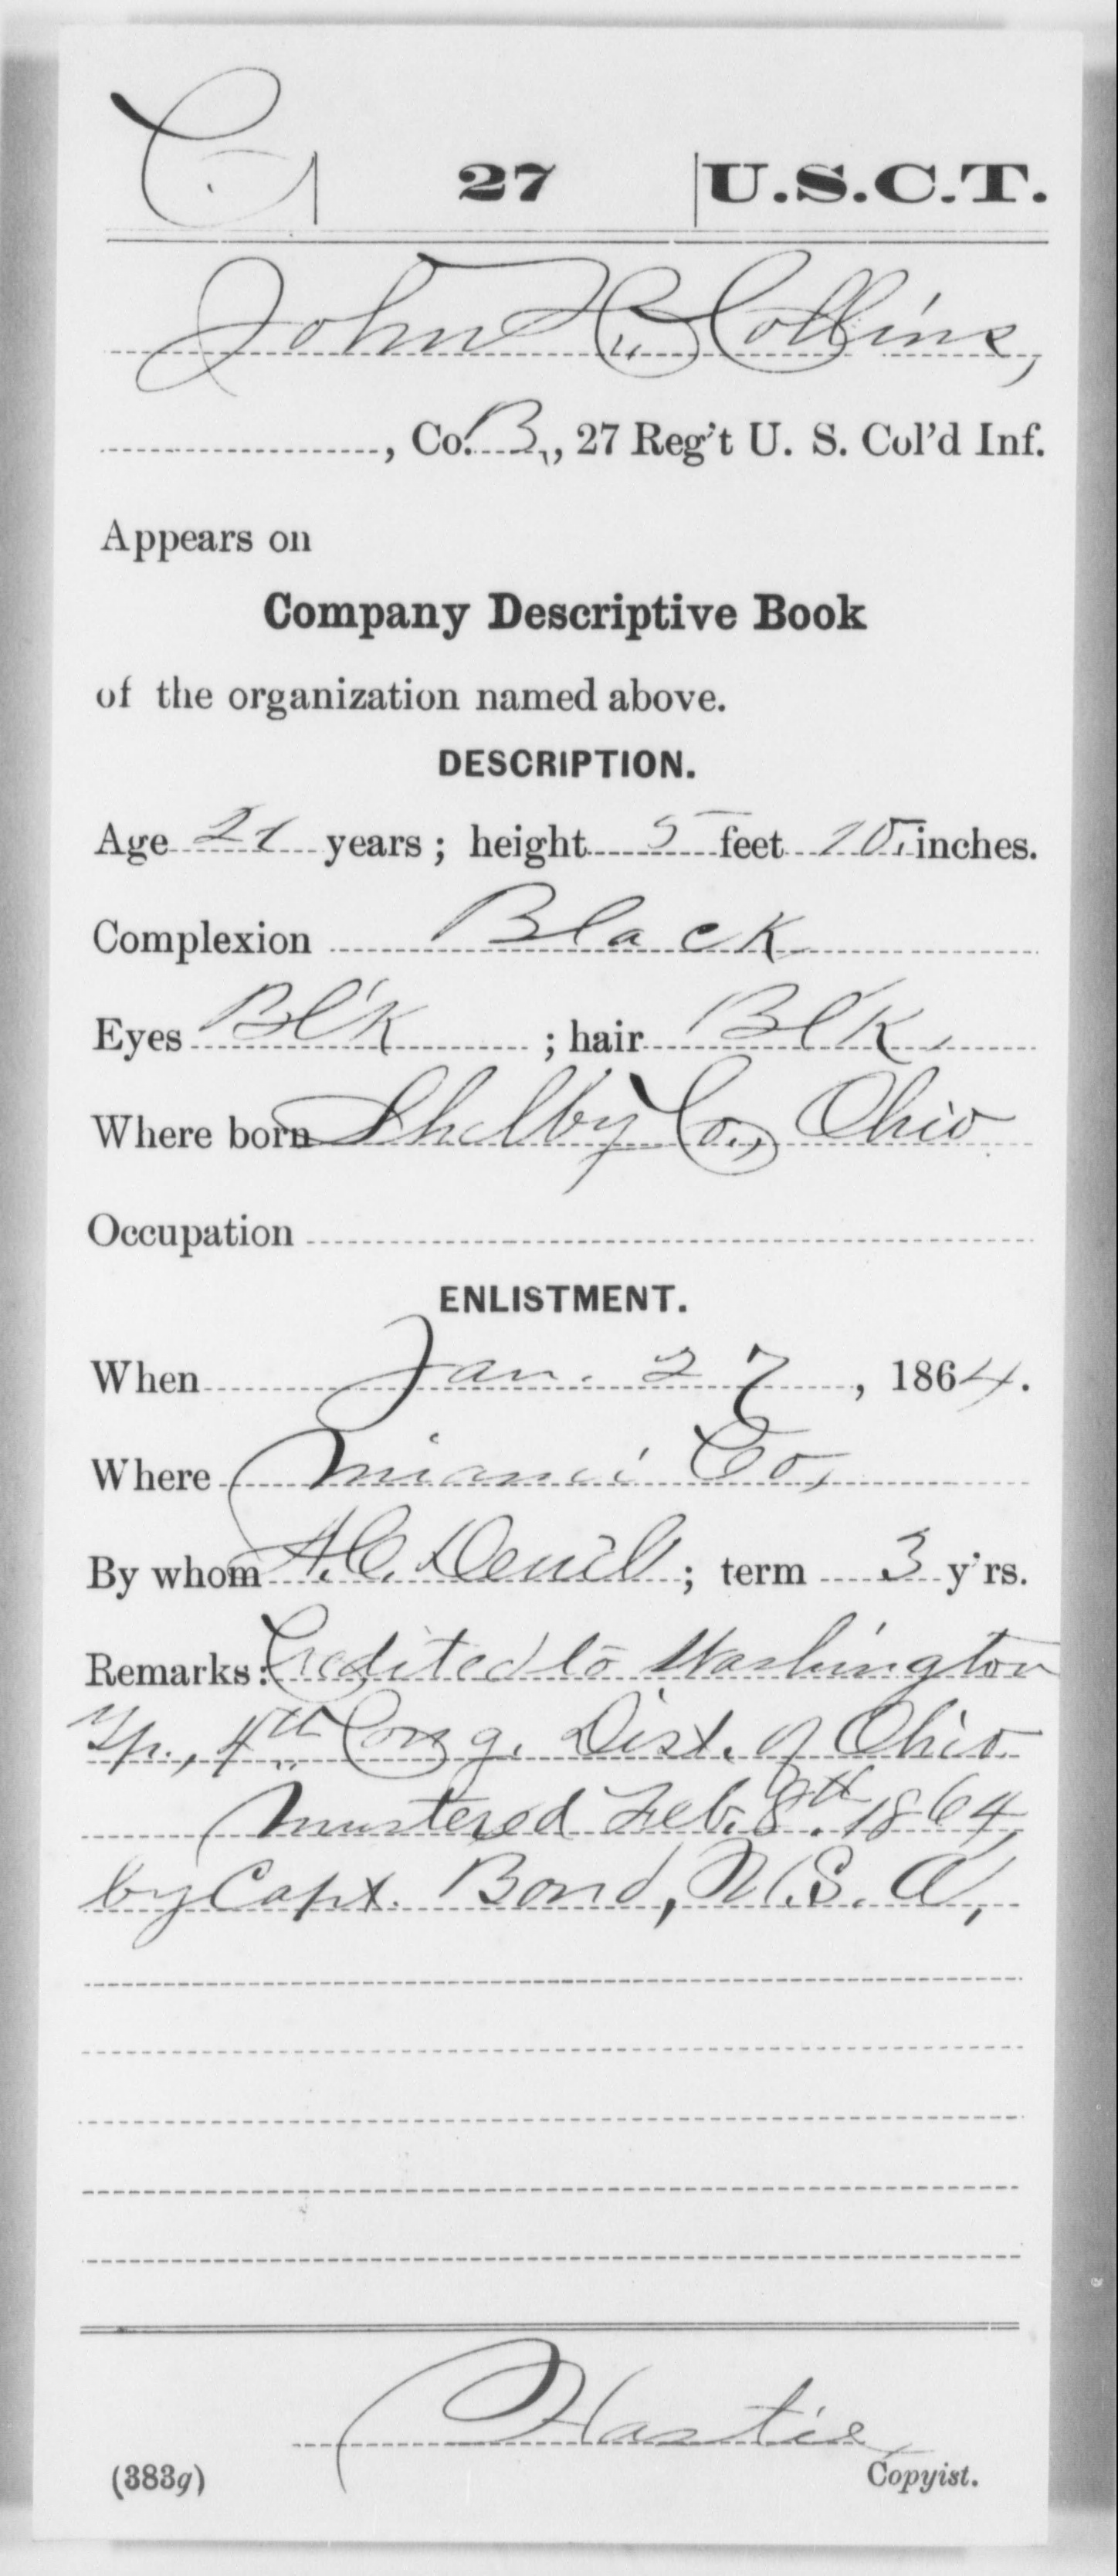 C | 27 | U.S.C.T.
John R. Collins,
, Co. B., 27 Reg't U. S. Col'd Inf.
Appears on
Company Descriptive Book
of the organization named above.
DESCRIPTION.
Age 21 years; height 5 feet 10 inches.
Complexion Black
Eyes Bl'k ; hair Bl'k,
Where born Shelby Co., Ohio
Occupation
ENLISTMENT.
When Jan. 27, 1864.
Where Miami Co,
By whom A.C. ; term 3 y'rs.
Remarks: Credited to Washington
Tp., 4th Cong. Dist. of Ohio
Mustered Feb. 8th 1864,
by Capt. Bond, U.S.A,
Hastie
(383g) Copyist.